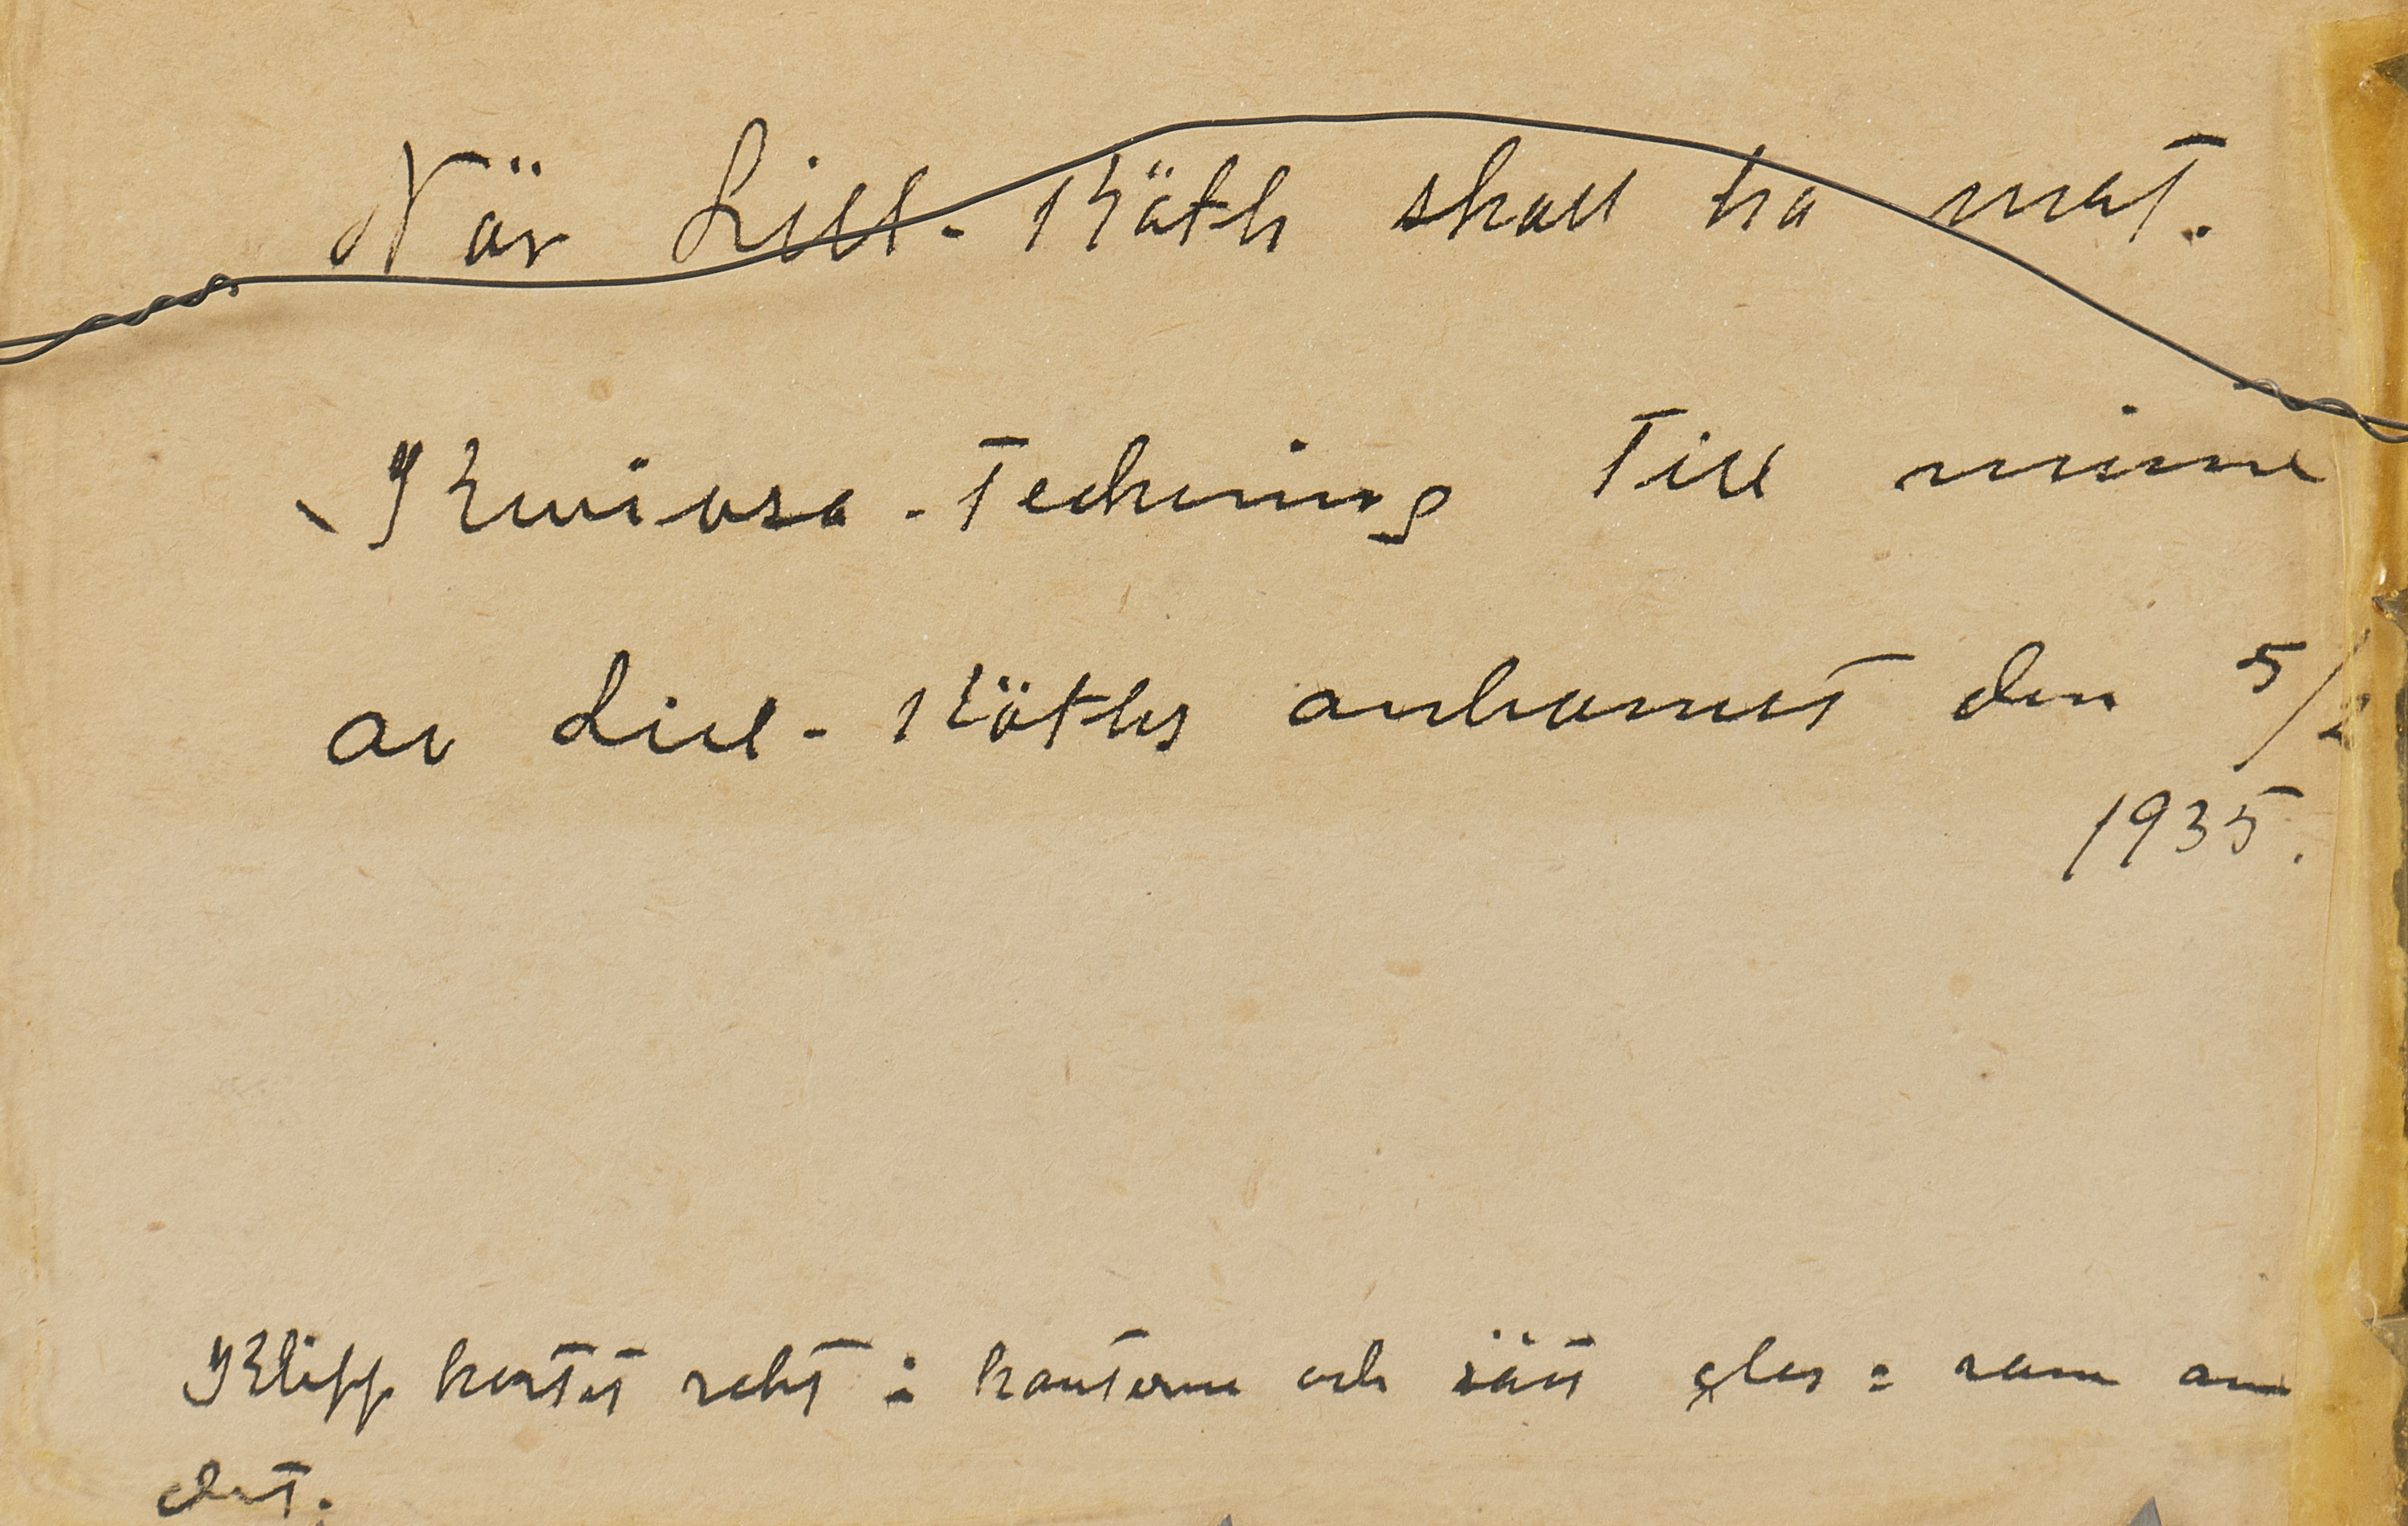 När Lill-Käth skall ha mat.
Kuriosa-Teckning Till minne
av Lill-Käths ankomst den 5/2
1935.
Klipp kortet rakt i kanterna och sätt glas = ram om
det.